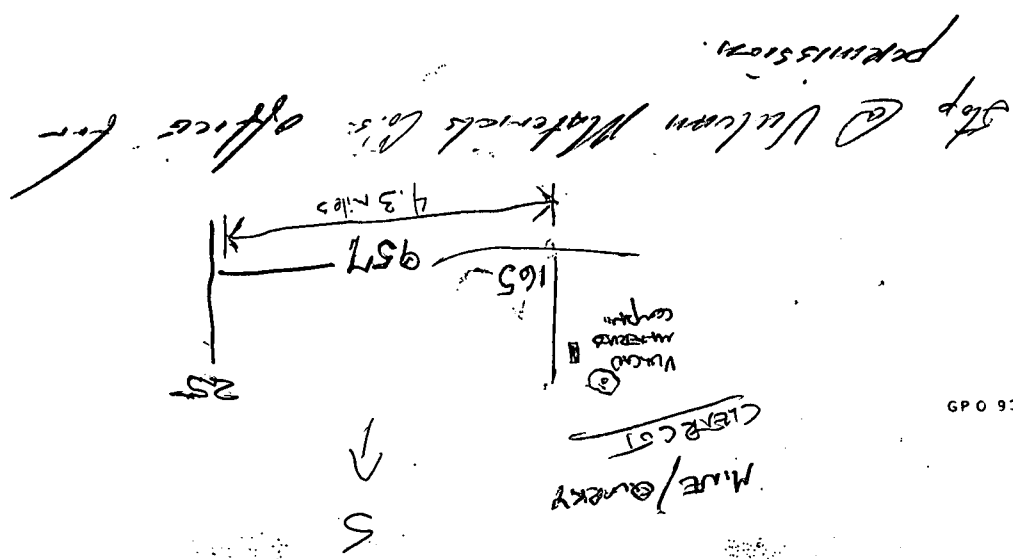 S
MINE/QUARRY
CLEAR CUT
VULCAN
MATERIALS
COMPANY
25
165
957
4.3 miles
Stop @ Vulcan Materials Co.'s office for
permission.
GPO 93